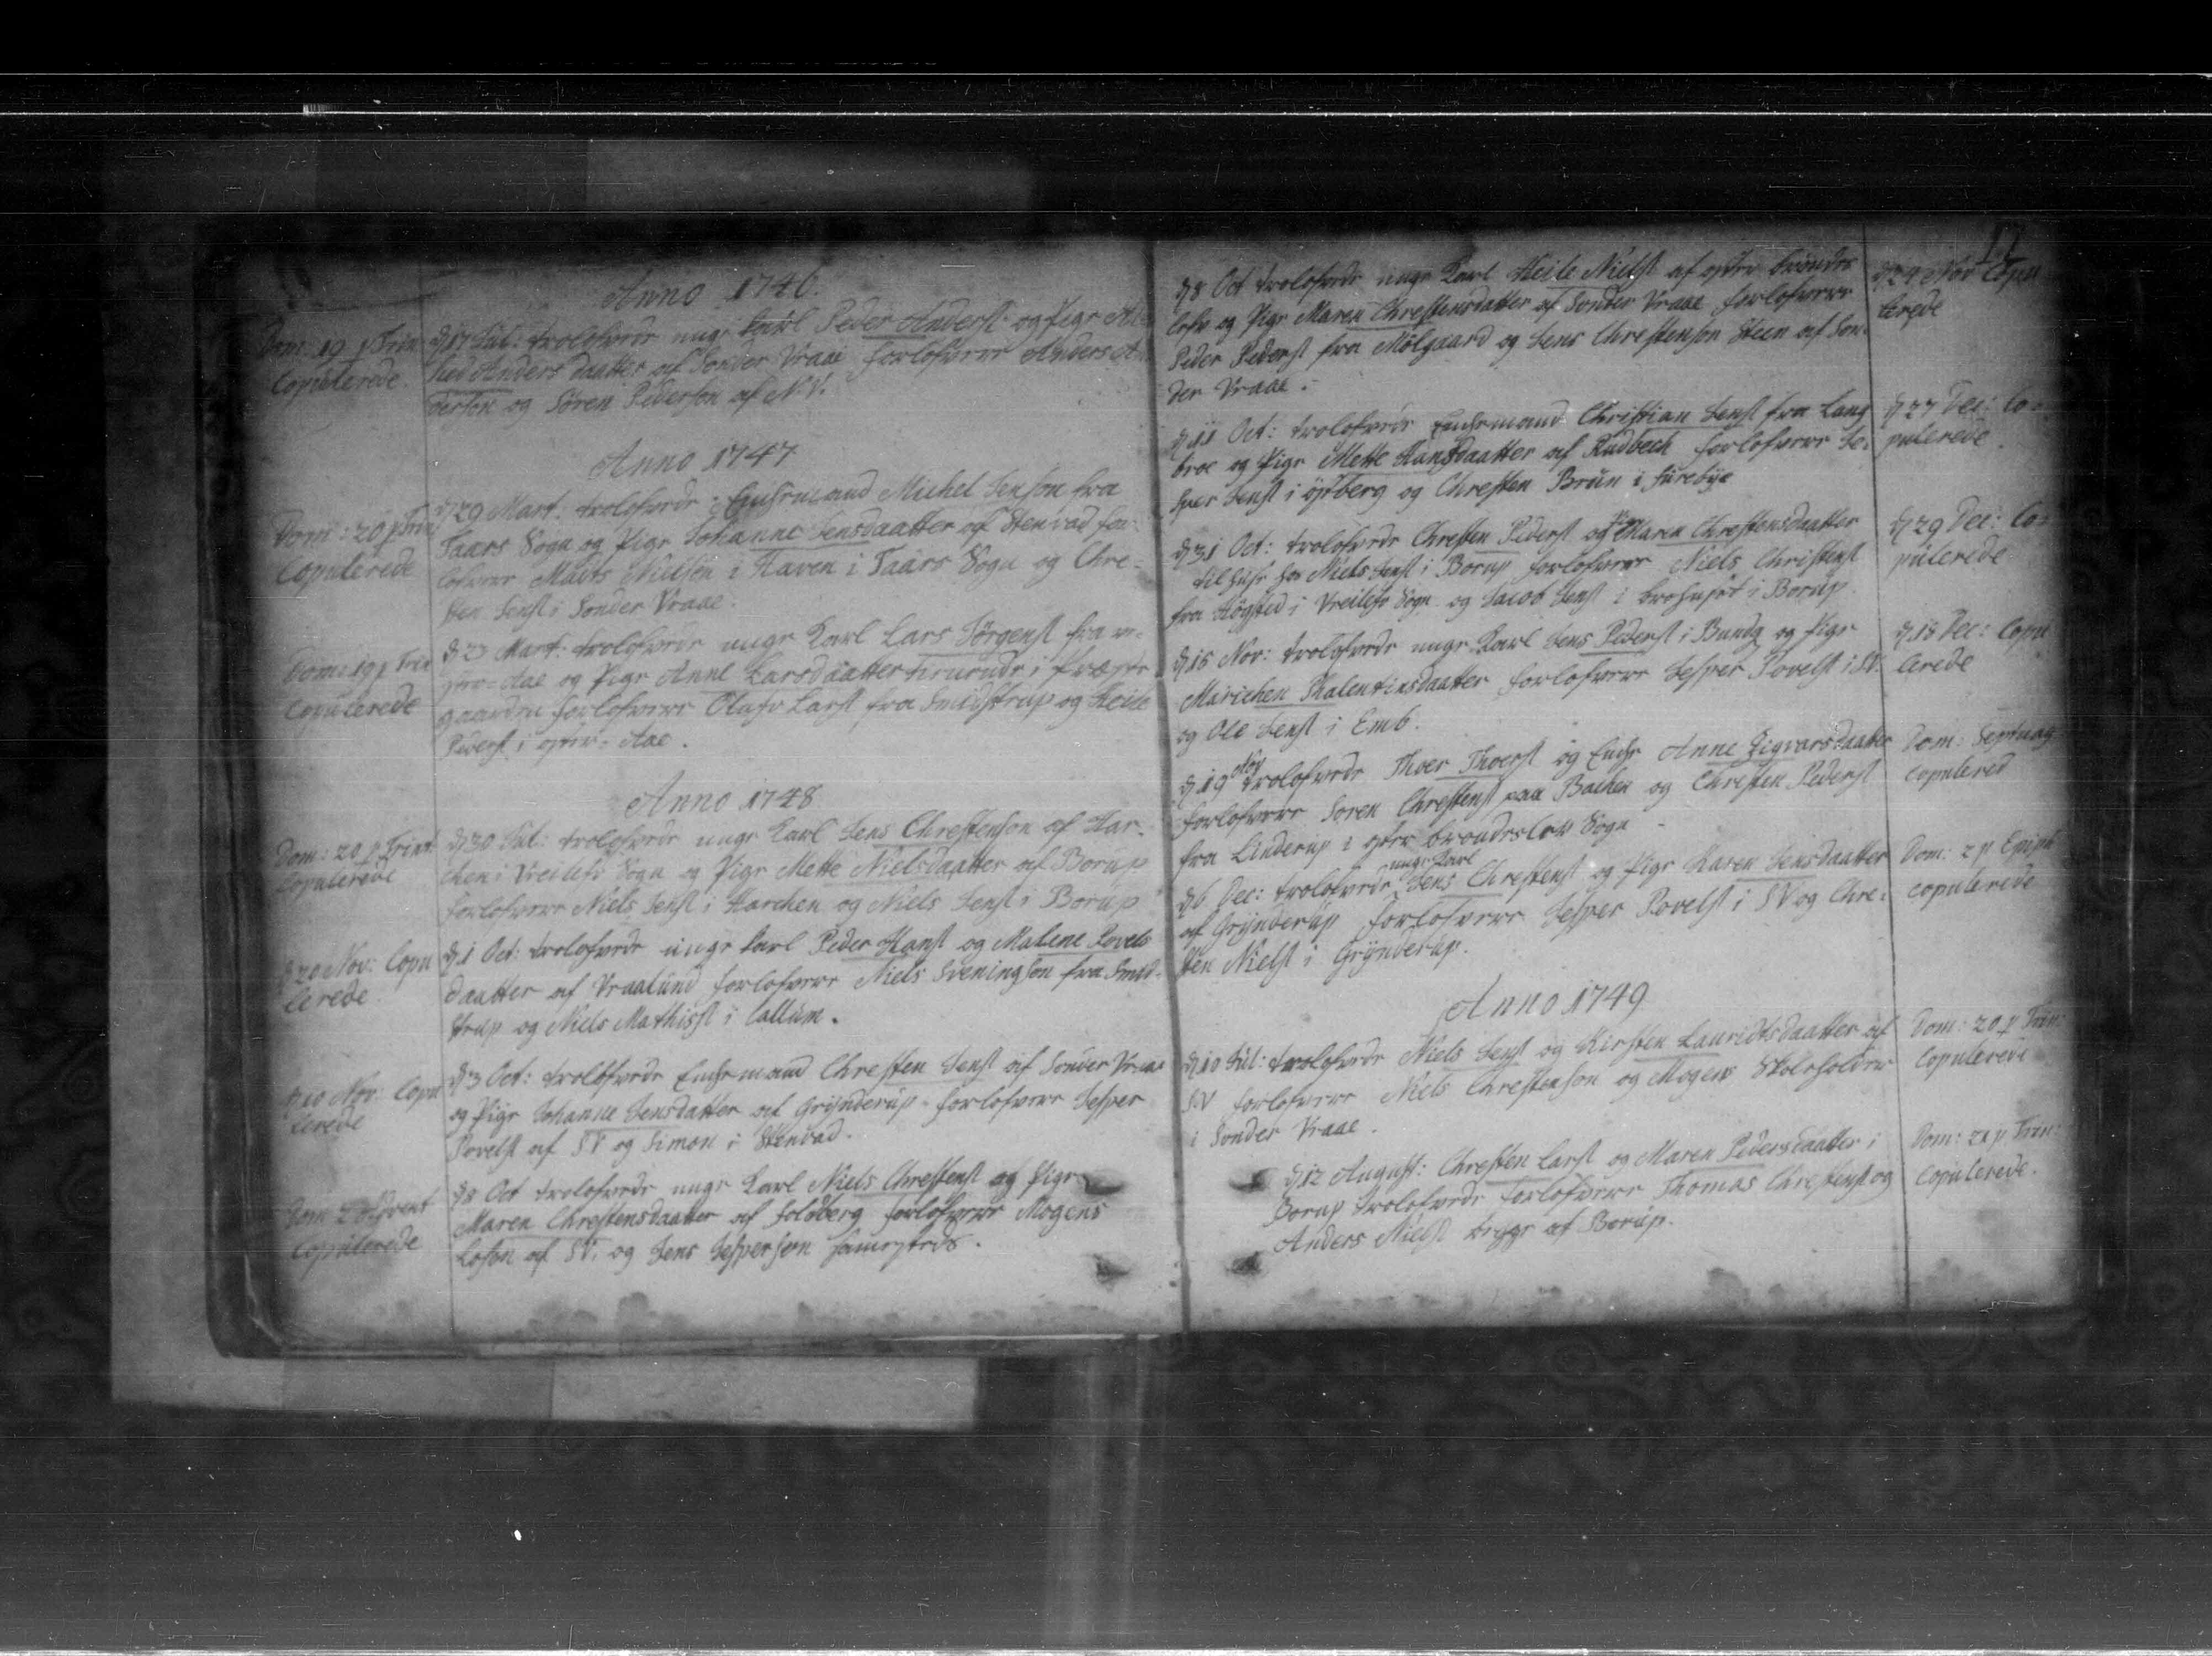 Anno 1746.
Dom: 19 p Trin
Copulerede.
d 17 Jul: trolofvede unge Karl Peder Anderss: og Pige
Anders daatter af Sonder Vraae forlofvere Anders An
derson og Søren Pederson af N.V.
Anno 1747
Dom: 20 p Trin
Copulerede
d 29 Mart: trolofvede Enckemand Michel Jenson fra
Taars Sogn og Pige Johanne Jensdaatter af Stenvad for
lofvere Mads Nielsen i Haven i Taars Sogn og Chre-
sten Jenss i Sonder Vraae.
Dom: 19 p Trin
Copulerede
d 23 Mart: trolofvede unge Karl Lars Jörgenss fra
Aae og Pige Anne Larsdaatter tienende i Præste
gaarden forlofvere Oluf Larss fra Smidstrup og Heile
Pederss i Aae.
Anno 1748
Dom: 20 p Trinit
Copulerede
d 30 Jul: trolofvede unge Karl Jens Chrestenson af Har-
chen i Vreilefs Sogn og Pige Mette Nielsdaatter af Borup
forlofvere Niels Jenss i Harchen og Niels Jenss i Borup
d 20 Nov: Copu
lerede
d 1 Oct: trolofvede unge Karl Peder Hanss og Malene Povels
daatter af Vraalund forlofvere Niels Sveningson fra Smid-
strup og Niels Mathiss i Callum.
d 10 Nov: Copu
lerede
d 3 Oct: trolofvede Enckemand Chresten Jenss af Sonder Vraae
og Pige Johanne Jensdatter af Grynderup forlofvere Jesper
Povelss af SV og Simon i Stenvad.
Dom 2 Advent
Copulerede
d 8 Oct trolofvede unge Karl Niels Chrestenss og Pige
Maren Chrestensdaatter af Foldberg forlofvere Mogens
af SV. og Jens Jesperson
17
d 8 Oct trolofvede unge Karl Heile Nielss af øster Brönders
lefv og Pige Maren Chrestensdatter af Sonder Vraae forlofvere
Peder Pederss fra Mölgaard og Jens Chrestenson Steen af Son-
der Vraae.
d 24 Nov Copu
lerede
d 11 Oct: trolofvede Enckemand Christian Jenss fra Lang
broe og Pige Mette Hansdaatter af Rudbech forlofvere Je-
sper Jenss i östberg og Chresten Brun i furebye
d 27 Dec: Co-
pulerede
d 31 Oct: trolofvede Chresten Pederss og Maren Chrestensdaatter
til huse hos Niels Jenss i Borup forlofvere Niels Christenss
fra Högsted i Vreilefs Sogn og Jacob Jenss i i Borup
d 29 Dec: Co-
pulerede
d 15 Nov: trolofvede unge Karl Jens Pederss i Bundg og Pige
Marichen Thalentinsdaatter forlofvere Jesper Povelss i SV.
og Ole Jenss i Emb.
d 18 Dec: Copu
lerede
d 19 Nov trolofvede Thoer Thoerss og Enke Anne Zigvarsdaatter
forlofvere Soren Chrestenss paa Bachen og Christen Pederss
fra Linderup i øster Brönderslev Sogn
Dom: Septuag
copulered
d 6 Dec: trolofvede unge Karl Jens Chrestenss og Pige Karen Jensdaatter
af Grynderup forlofvere Jesper Povelss i SV og Chre-
sten Nielss i Grynderup.
Dom: 2 p Epiph
copulerede
Anno 1749
d 10 Jul: trolofvede Niels Jenss og Kirsten Lauridtsdaatter af
SV forlofvere Niels Chrestenson og Mogens Skoleholder
i Sonder Vraae.
Dom: 20 p Trin:
Copulerede
d 12 August: Chresten Larss og Maren Pedersdaatter i
Borup trolofvede forlofvere Thomas Chrestenss og
Anders Nielss begge af Borup.
Dom: 21 p Trin:
Copulerede.